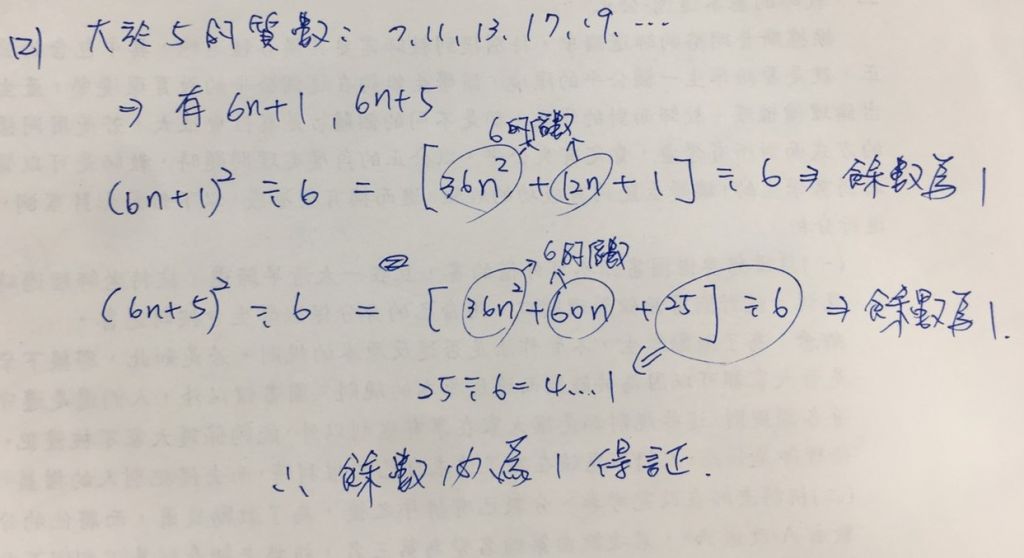 (2) 大於5的質數: 7, 11, 13, 17, 19. ...
⇒ 有 6n+1, 6n+5
6的倍數
(6n+1)² ÷ 6 = [36n² + 12n + 1] ÷ 6 ⇒ 餘數為 1
6的倍數
(6n+5)² ÷ 6 = [36n² + 60n + 25] ÷ 6 ⇒ 餘數為 1.
25 ÷ 6 = 4...1
∴ 餘數均為 1 得証.